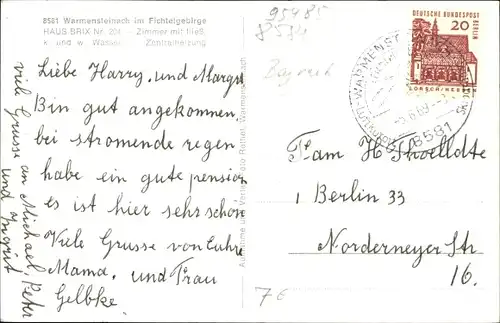 8581 Warmensteinach im Fichtelgebirge
HAUS BRIX Nr. 204 - Zimmer mit fließ.
k. und w. Wasser - Zentralheizung
95485
8584
Bayreuth
Liebe Harry, und Margit
Bin gut angekommen,
bei stromende regen
habe ein gute pension
es ist hier sehr schön
Viele Grusse von Euhre
Mama. und Frau
Gelbke.
viele Grusse an Michael Peter
und Ingrid!
DEUTSCHE BUNDESPOST
BERLIN
20
LORSCH/HESSEN
8581
Fam H Thoelldte
1 Berlin 33
Norderneyer Str
16.
76